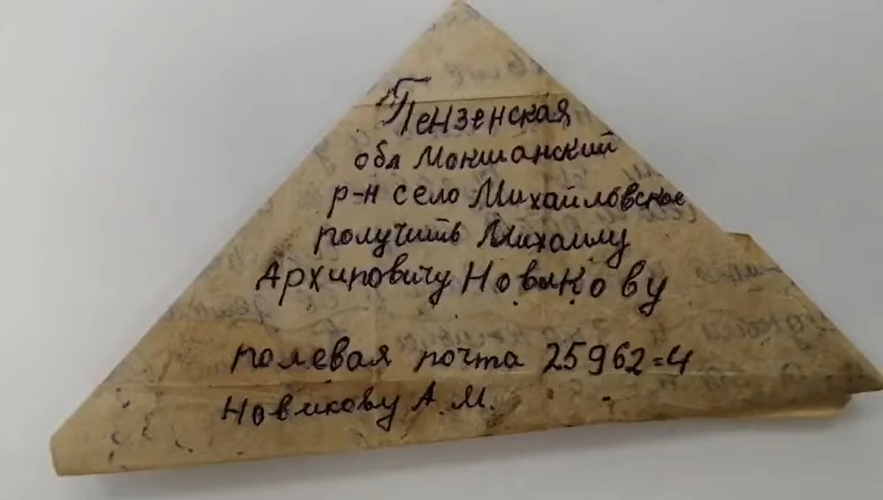 Пензенская
обл Мокшанский
р-н село Михайловское
получить Михаилу
Архиповичу Новикову
полевая почта 25962=4
Новикову А.М.